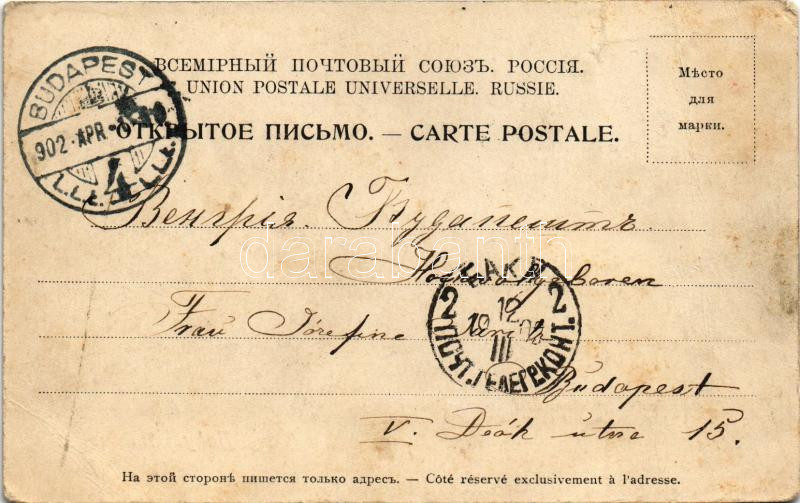 ВСЕМІРНЫЙ ПОЧТОВЫЙ СОЮЗЪ. РОССІЯ.
UNION POSTALE UNIVERSELLE. RUSSIE.
ОТКРЫТОЕ ПИСЬМО. — CARTE POSTALE.
Мѣсто
для
марки.
BUDAPEST
902 APR
4
Венгрія. Будапештъ.
Hochwohlgeboren
Frau Josefine
БАКУ
2 12 2
19 02
III
ПОЧТ. ТЕЛЕГР. КОНТ.
Budapest
V. Deák utcse 15.
darabanth
На этой сторонѣ пишется только адресъ. — Côté réservé exclusivement à l'adresse.